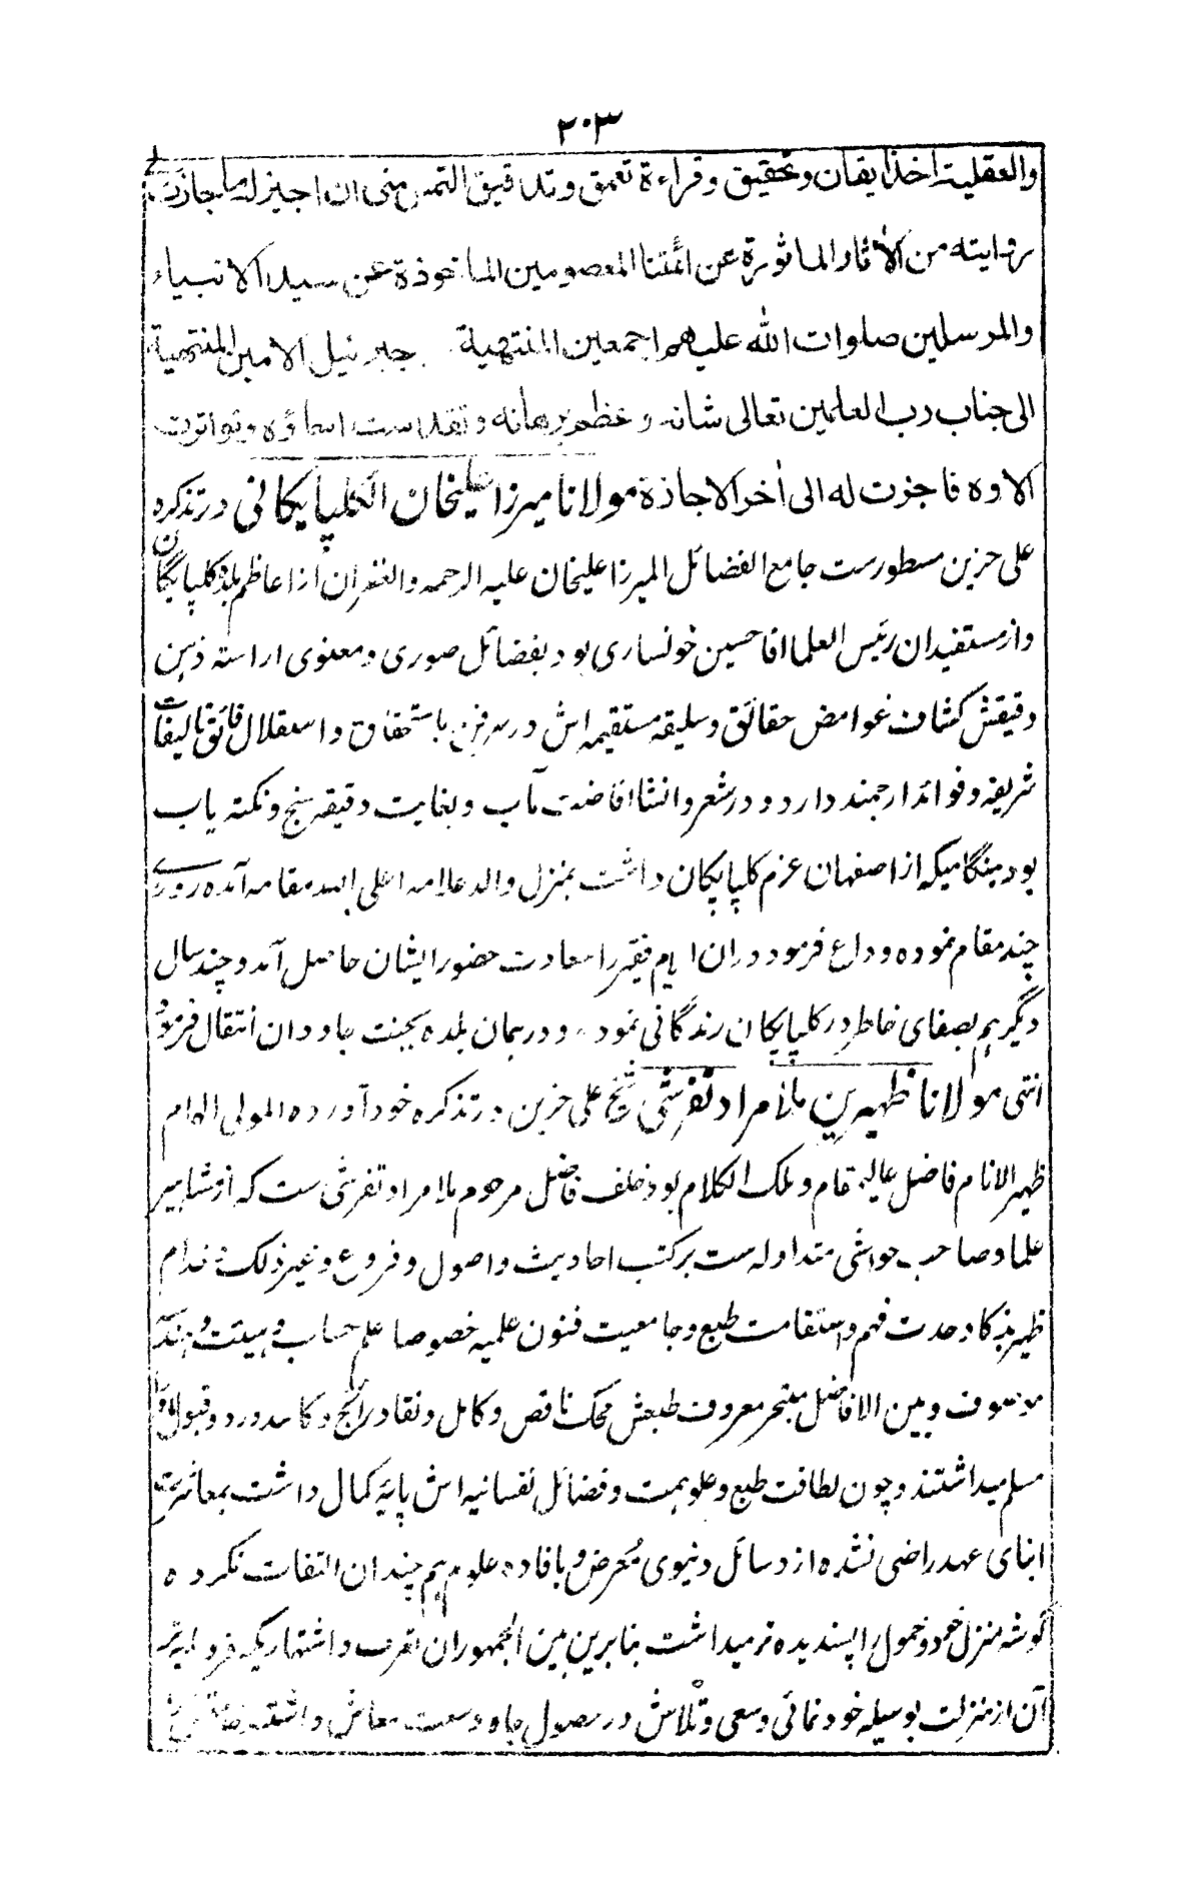 ۲۰۳
والعقلیة اخذ ایقان وتحقیق وقراءة تعمق وتدقیق التمس منی ان اجیز له ما جازت لی
روایته من الآثار الماثورة عن ائمتنا المعصومین الماخوذة عن سید الانبیاء
والمرسلین صلوات الله علیهم اجمعین المنتهیة جبرئیل الامین المنتهیة
الی جناب رب العلمین تعالی شانه و عظم برهانه و تقدست اسماؤه وتواترت
الاوه فاجزت له الی اخر الاجازة مولانا میرزا علیخان الگلپایگانی در تذکره
علی حزین مسطورست جامع الفضائل المیرزا علیخان علیه الرحمه والغفران از اعاظم بلده گلپایگان
واز مستفیدان رئیس العلما اقا حسین خونساری بود بفضائل صوری ومعنوی اراسته ذهن
دقیقش کشاف غوامض حقائق وسلیقه مستقیمه اش در هر فن باستحقاق و استقلال فائق تالیفات
شریفه وفوائد ارجمند دارد و در شعر وانشا افاضت مآب وبغایت دقیقه سنج ونکته یاب
بود هنگامیکه از اصفهان عزم گلپایگان داشت بمنزل والد علامه اعلی الله مقامه آمده روزے
چند مقام نموده وداع فرمود دران ایام فقیر را سعادت حضور ایشان حاصل آمد وچند سال
دیگر هم بصفای خاطر در گلپایگان زندگانی نموده و در همان بلده بجنت جاودان انتقال فرمود
انتهی مولانا ظهیر بن ملا مراد تفرشی شیخ علی حزین در تذکره خود آورده المولی الهام
ظهیر الانام فاضل عالیمقام وملک الکلام بود خلف فاضل مرحوم ملا مراد تفرشی ست که از مشاهیر
علما وصاحب حواشی متداوله ست بر کتب احادیث و اصول و فروع و غیر ذلک
ظهیر بذکا وحدت فهم واستقامت طبع وجامعیت فنون علمیه خصوصا علم حساب و هیئت و هندسه
موصوف وبین الافاضل بتبحر معروف طبعش محک ناقص وکامل ونقاد رائج وکاسد ورد وقبول او را
مسلم میداشتند وچون لطافت طبع وعلو همت وفضائل نفسانیه اش پایهٔ کمال داشت بمعاشرت
ابنای عهد راضی نشده از وسائل دنیوی معرض و بافاده علوم هم چندان التفات نکرده
گوشه منزل خود وخمول را پسندیده تر میداشت بنابرین بین الجمهور ان تعرف واشتهاریکه فروتر
آن از منزلت بوسیله خود نمائی وسعی وتلاش در حصول جاه وسعت معاش داشتند